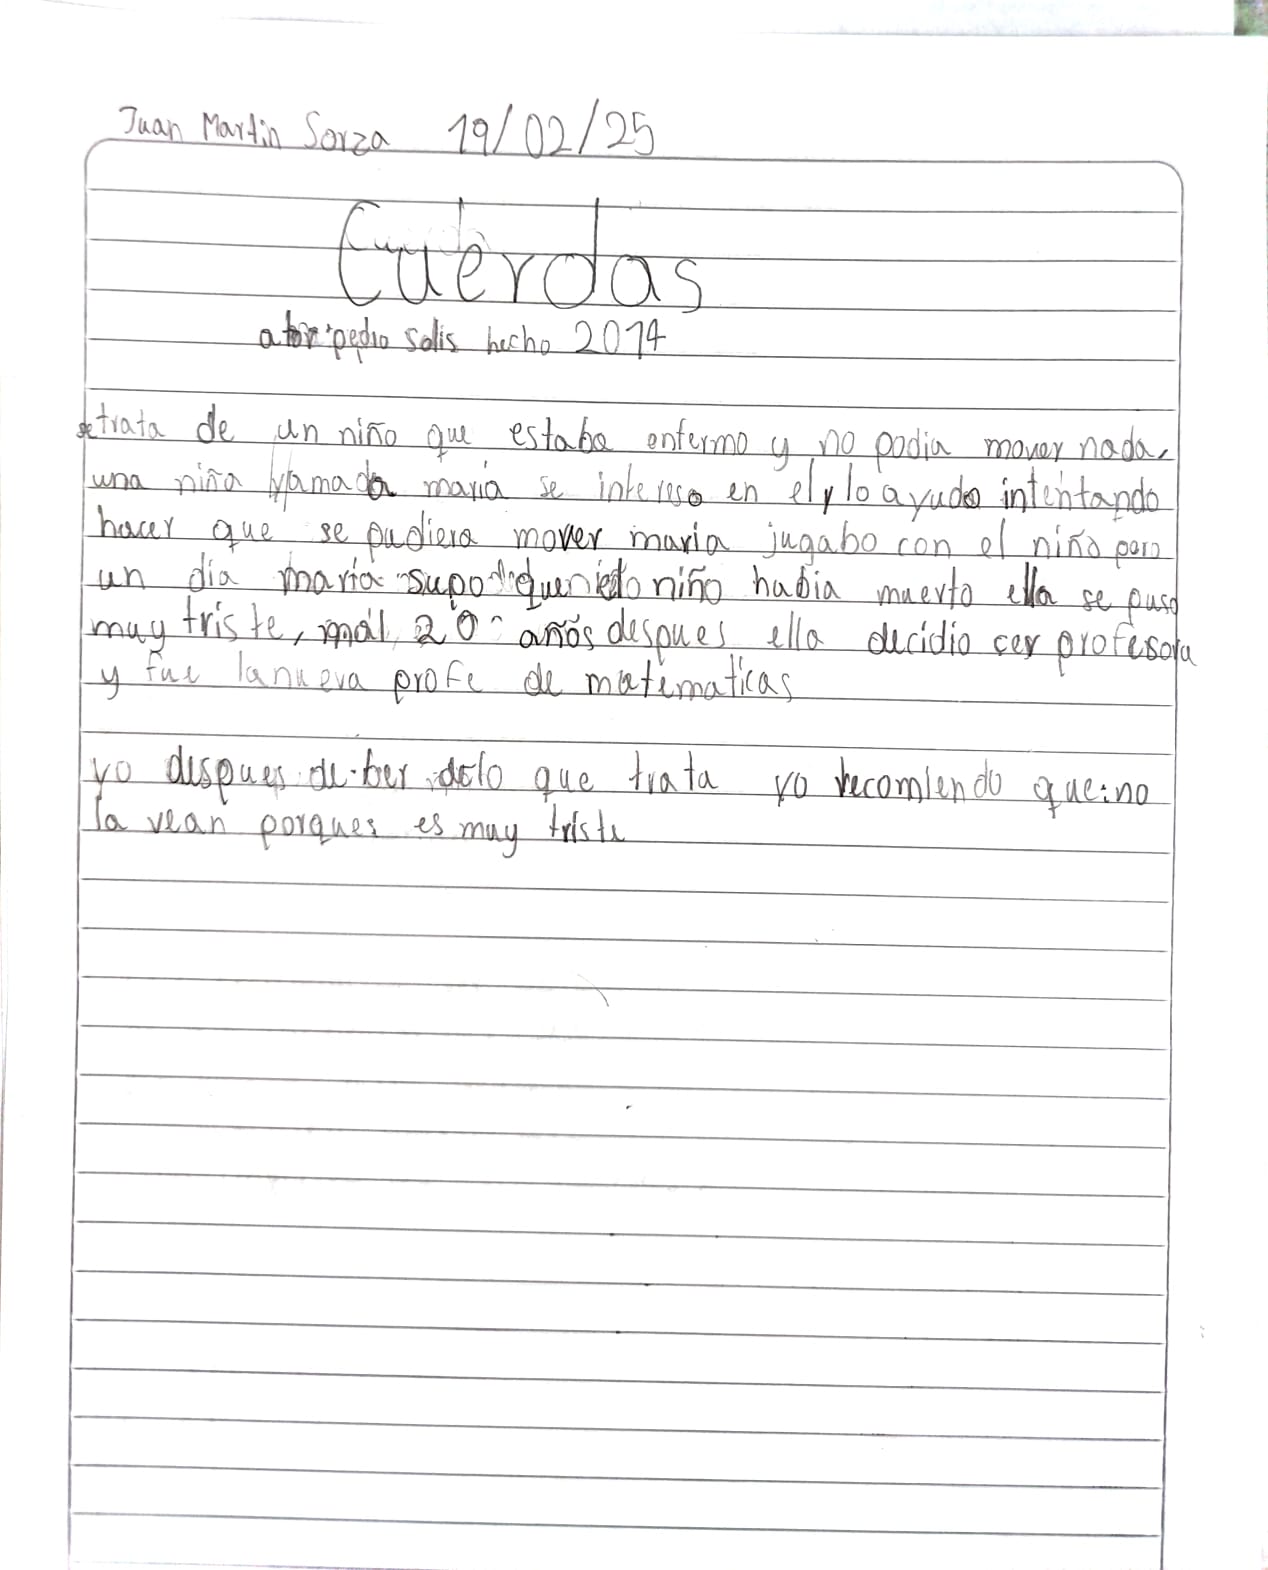 Juan Martin Sorza 19/02/25
Cuerdas
ator: pedro solis hecho 2014
se trata de un niño que estaba enfermo y no podia mover nada,
una niña llamada maria se intereso en el y lo ayudo intentando
hacer que se pudiera mover maria jugabo con el niño pero
un dia maria supo que niño habia muerto ella se puso
muy triste, 20 años despues ella decidio cer profesora
y fue la nueva profe de matematicas
yo despues de ber delo que trata yo recomiendo que no
la vean porques es muy triste